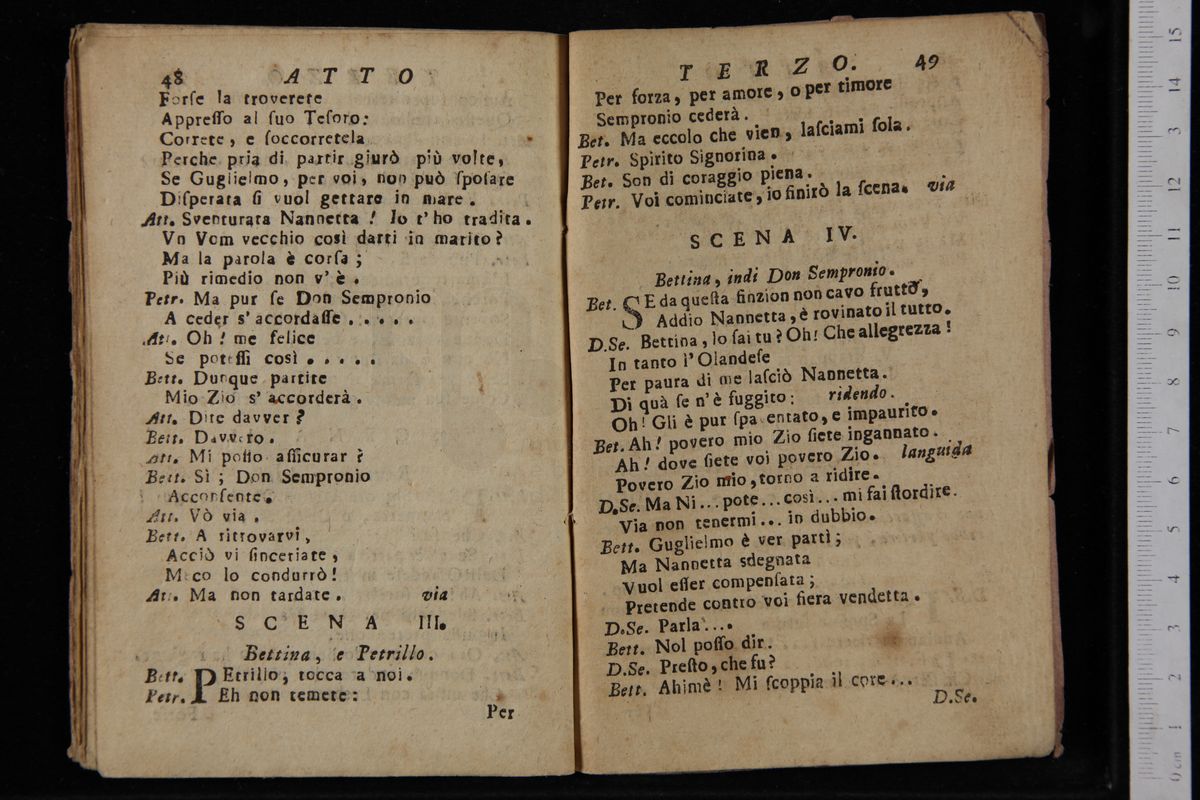 48 ATTO
Forſe la troverete
Appreſſo al ſuo Teſoro:
Correte, e ſoccorretela
Perche pria di partir giurò più volte,
Se Guglielmo, per voi, non può ſpoſare
Diſperata ſi vuol gettare in mare.
Att. Sventurata Nannetta! Io t'ho tradita.
Vn Vom vecchio così darti in marito?
Ma la parola è corſa;
Più rimedio non v'è.
Petr. Ma pur ſe Don Sempronio
A ceder s'accordaſſe.....
Att. Oh! me felice
Se poteſſi così.....
Bett. Dunque partite
Mio Zio s'accorderà.
Att. Dite davver?
Bett. Davvero.
Att. Mi poſſo aſſicurar?
Bett. Sì; Don Sempronio
Acconſente.
Att. Vò via.
Bett. A ritrovarvi,
Acciò vi ſinceriate,
Meco lo condurrò!
Att. Ma non tardate. via
SCENA III.
Bettina, e Petrillo.
Bett. PEtrillo, tocca a noi.
Petr. Eh non temete:
Per
TERZO. 49
Per forza, per amore, o per timore
Sempronio cederà.
Bet. Ma eccolo che vien, laſciami ſola.
Petr. Spirito Signorina.
Bet. Son di coraggio piena.
Petr. Voi cominciate, io finirò la ſcena. via
SCENA IV.
Bettina, indi Don Sempronio.
Bet. SE da queſta finzion non cavo frutto,
Addio Nannetta, è rovinato il tutto.
D.Se. Bettina, lo ſai tu? Oh! Che allegrezza!
In tanto l'Olandeſe
Per paura di me laſciò Nannetta.
Di quà ſe n'è fuggito: ridendo.
Oh! Gli è pur ſpaventato, e impaurito.
Bet. Ah! povero mio Zio ſiete ingannato.
Ah! dove ſiete voi povero Zio. languida
Povero Zio mio, torno a ridire.
D.Se. Ma Ni... pote... così... mi fai ſtordire.
Via non tenermi... in dubbio.
Bett. Guglielmo è ver partì;
Ma Nannetta sdegnata
Vuol eſſer compenſata;
Pretende contro voi fiera vendetta.
D.Se. Parla....
Bett. Nol poſſo dir.
D.Se. Preſto, che fu?
Bett. Ahimè! Mi ſcoppia il core...
D.Se.
0 cm 1 2 3 4 5 6 7 8 9 10 11 12 13 14 15